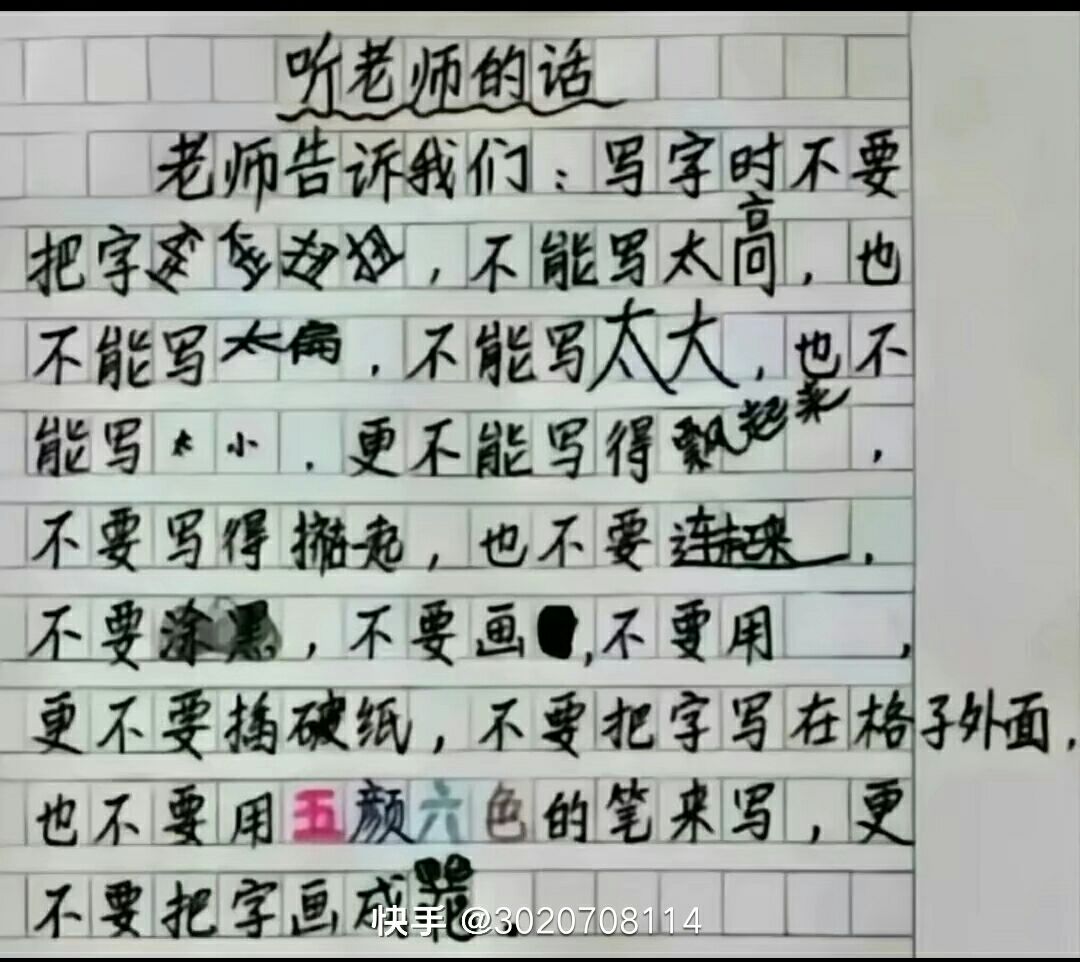 听老师的话
老师告诉我们：写字时不要
把字歪歪扭扭，不能写太高，也
不能写太扁，不能写太大，也不
能写太小，更不能写得飘起来，
不要写得挤一起，也不要连起来，
不要涂黑，不要画，不要用，
更不要插破纸，不要把字写在格子外面，
也不要用五颜六色的笔来写，更
不要把字画成
快手 @3020708114